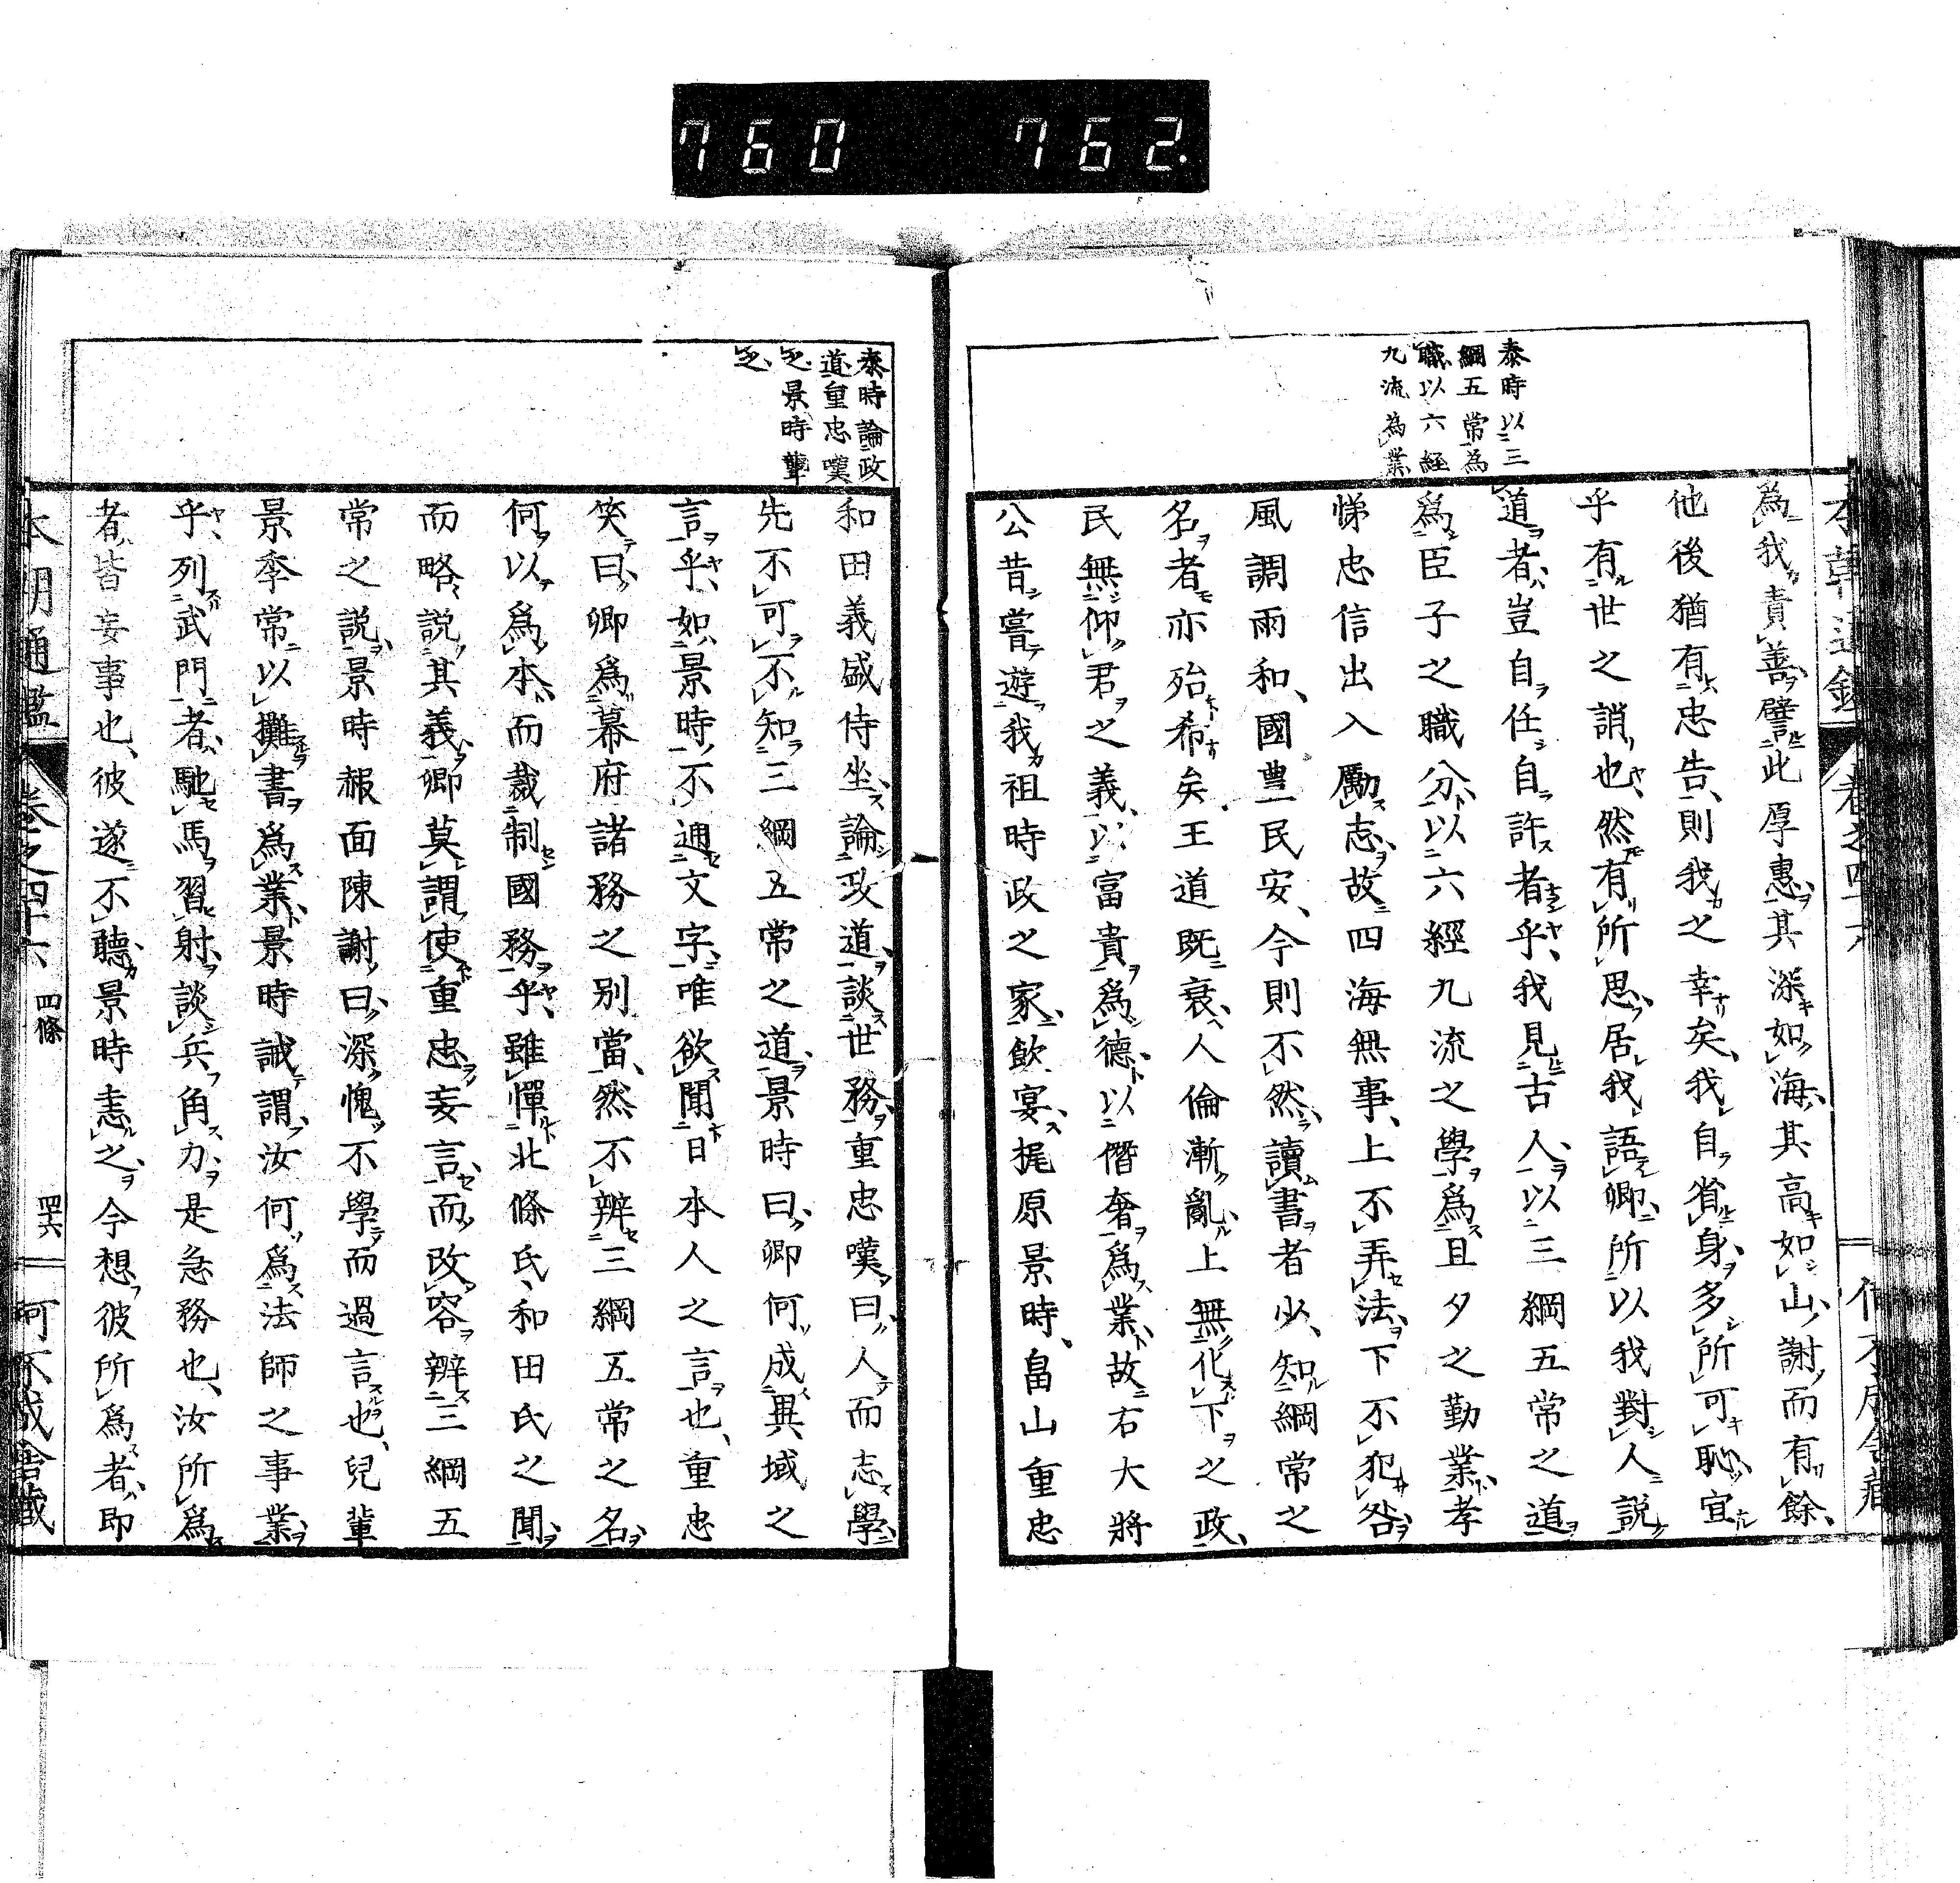 760 762.
泰時以三
綱五常為
職以六經
九流為業
為我責善譬此厚惠其深如海其高如山謝而有餘、
他後猶有忠告、則我之幸矣、我自省身多所可恥宜
乎有世之誚也、然有所思居我語卿所以我對人說
道者豈自任自許者乎、我見古人以三綱五常之道
爲臣子之職分以六經九流之學爲且夕之勤業孝
悌忠信出入勵志故四海無事、上不弄法下不犯咎
風調雨和、國豊民安、今則不然讀書者少、知綱常之
名者亦殆希矣、王道既衰人倫漸亂上無化下之政、
民無仰君之義、以富貴爲德以僭奢爲業故右大將
公昔嘗遊我祖時政之家飲宴、梶原景時、畠山重忠
泰時論政
道重忠嘆
之景時聾
之
和田義盛侍坐論政道談世務重忠嘆曰人而志學
先不可不知三綱五常之道景時曰卿何成異域之
言乎、如景時不通文字唯欲聞日本人之言也、重忠
笑曰卿爲幕府諸務之別當、然不辨三綱五常之名
何以爲本、而裁制國務乎、雖憚北條氏、和田氏之聞
而略說其義卿莫謂使重忠妄言而改容辨三綱五
常之說景時赧面陳謝曰深愧不學而過言也、兒輩
景季常以攤書爲業景時誡謂汝何爲法師之事業
乎、列武門者馳馬習射談兵角力是急務也、汝所爲
者皆妄事也、彼遂不聽景時恚之今想彼所爲者即
本朝通鑑 卷之四十六 四條 四十六 何不成舍藏